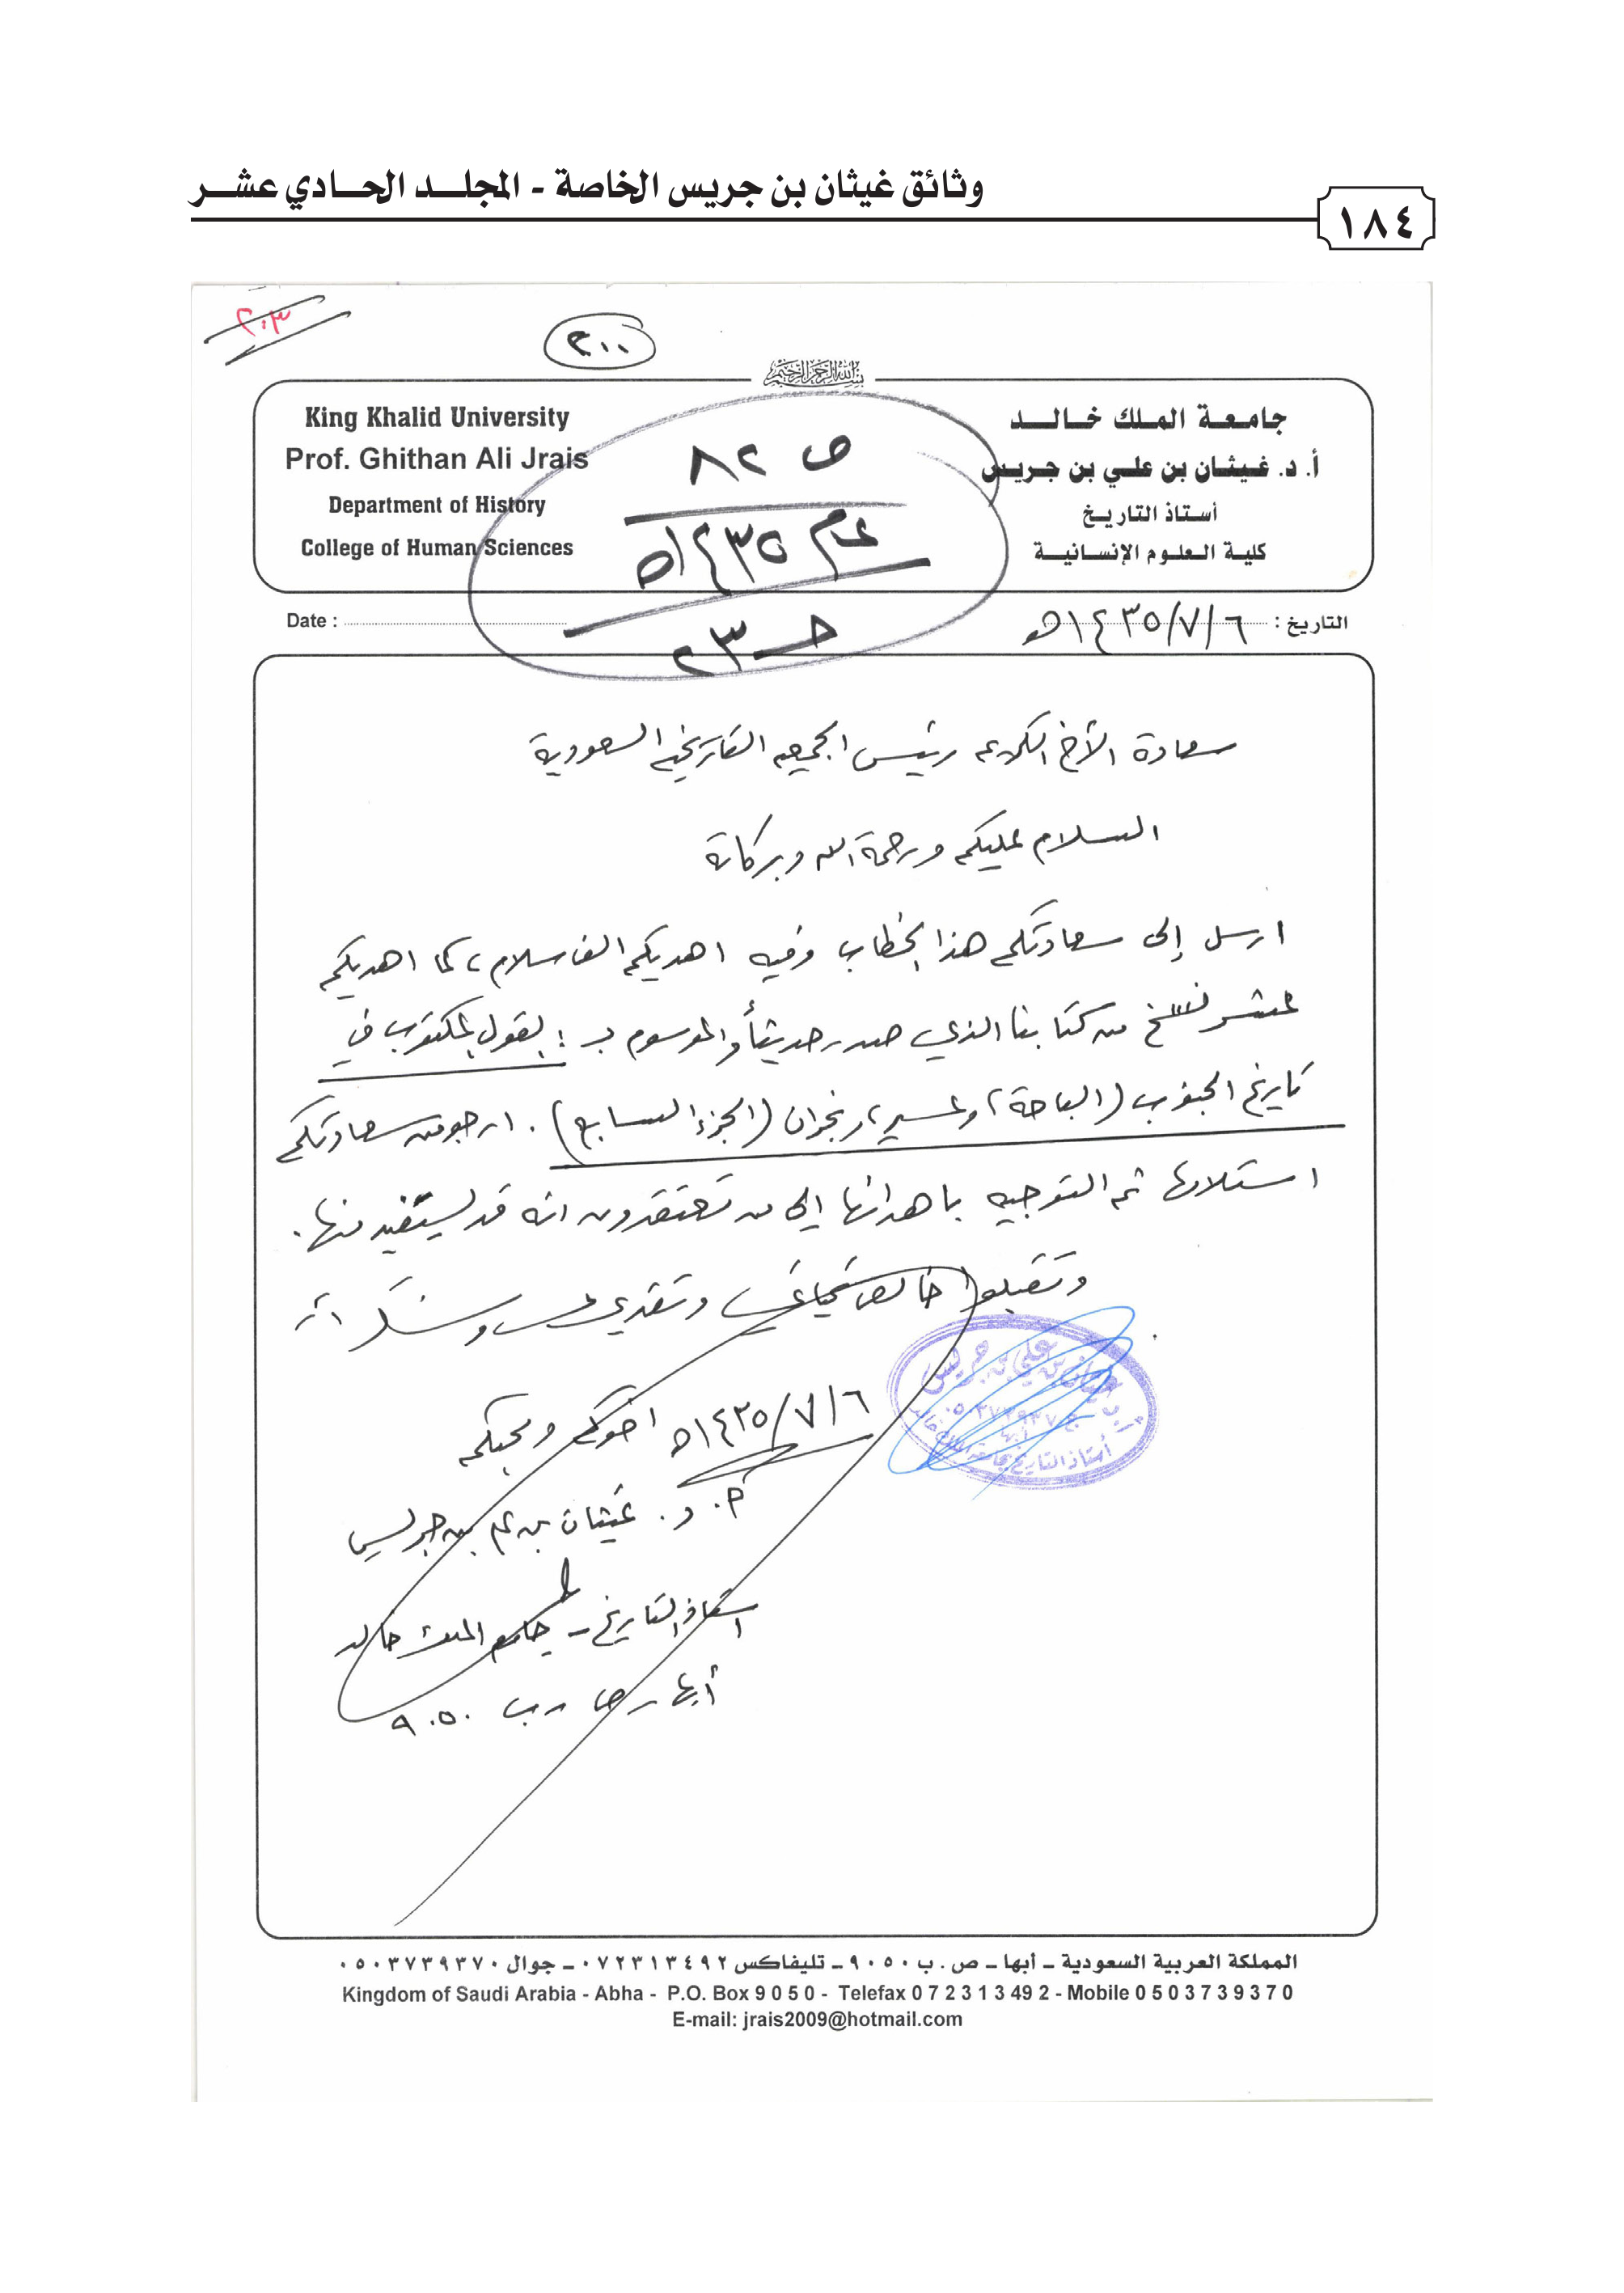 وثائق غيثان بن جريس الخاصة - المجلد الحادي عشر
١٨٤
٢٠٣
٣٠٠
بسم الله الرحمن الرحيم
جامعة الملك خالد
أ. د. غيثان بن علي بن جريس
أستاذ التاريخ
كلية العلوم الإنسانية
King Khalid University
Prof. Ghithan Ali Jrais
Department of History
College of Human Sciences
ص ٨٢
عام ١٤٣٥هـ
حـ ٢٣
التاريخ : ١٤٣٥/٧/٦هـ
Date :
سعادة الأخ الكريم رئيس الجمعية التاريخية السعودية
السلام عليكم ورحمة الله وبركاته
ارسل إلى سعادتكم هذا الخطاب وفيه اهديكم الف سلام، كما اهديكم
عشر نسخ من كتابنا الذي صدر حديثاً والموسوم بـ : القول المكتوب في
تاريخ الجنوب (الباحة، وعسير، ونجران (الجزء السابع). ارجو من سعادتكم
استلامها ثم التوجيه باهدائها إلى من تعتقدون انه قد يستفيد منها.
وتقبلوا خالص تحياتي وتقديري وشكراً
١٤٣٥/٧/٦هـ اخوكم ومحبكم
أ. د. غيثان بن علي بن جريس
استاذ التاريخ - جامعة الملك خالد
أبها - ص . ب ٩٠٥٠
غيثان بن علي بن جريس
أبها
أستاذ التاريخ بجامعة الملك خالد
المملكة العربية السعودية - أبها - ص . ب ٩٠٥٠ - تليفاكس ٠٧٢٣١٣٤٩٢ - جوال ٠٥٠٣٧٣٩٣٧٠
Kingdom of Saudi Arabia - Abha - P.O. Box 9 0 5 0 - Telefax 0 7 2 3 1 3 49 2 - Mobile 0 5 0 3 7 3 9 3 7 0
E-mail: jrais2009@hotmail.com